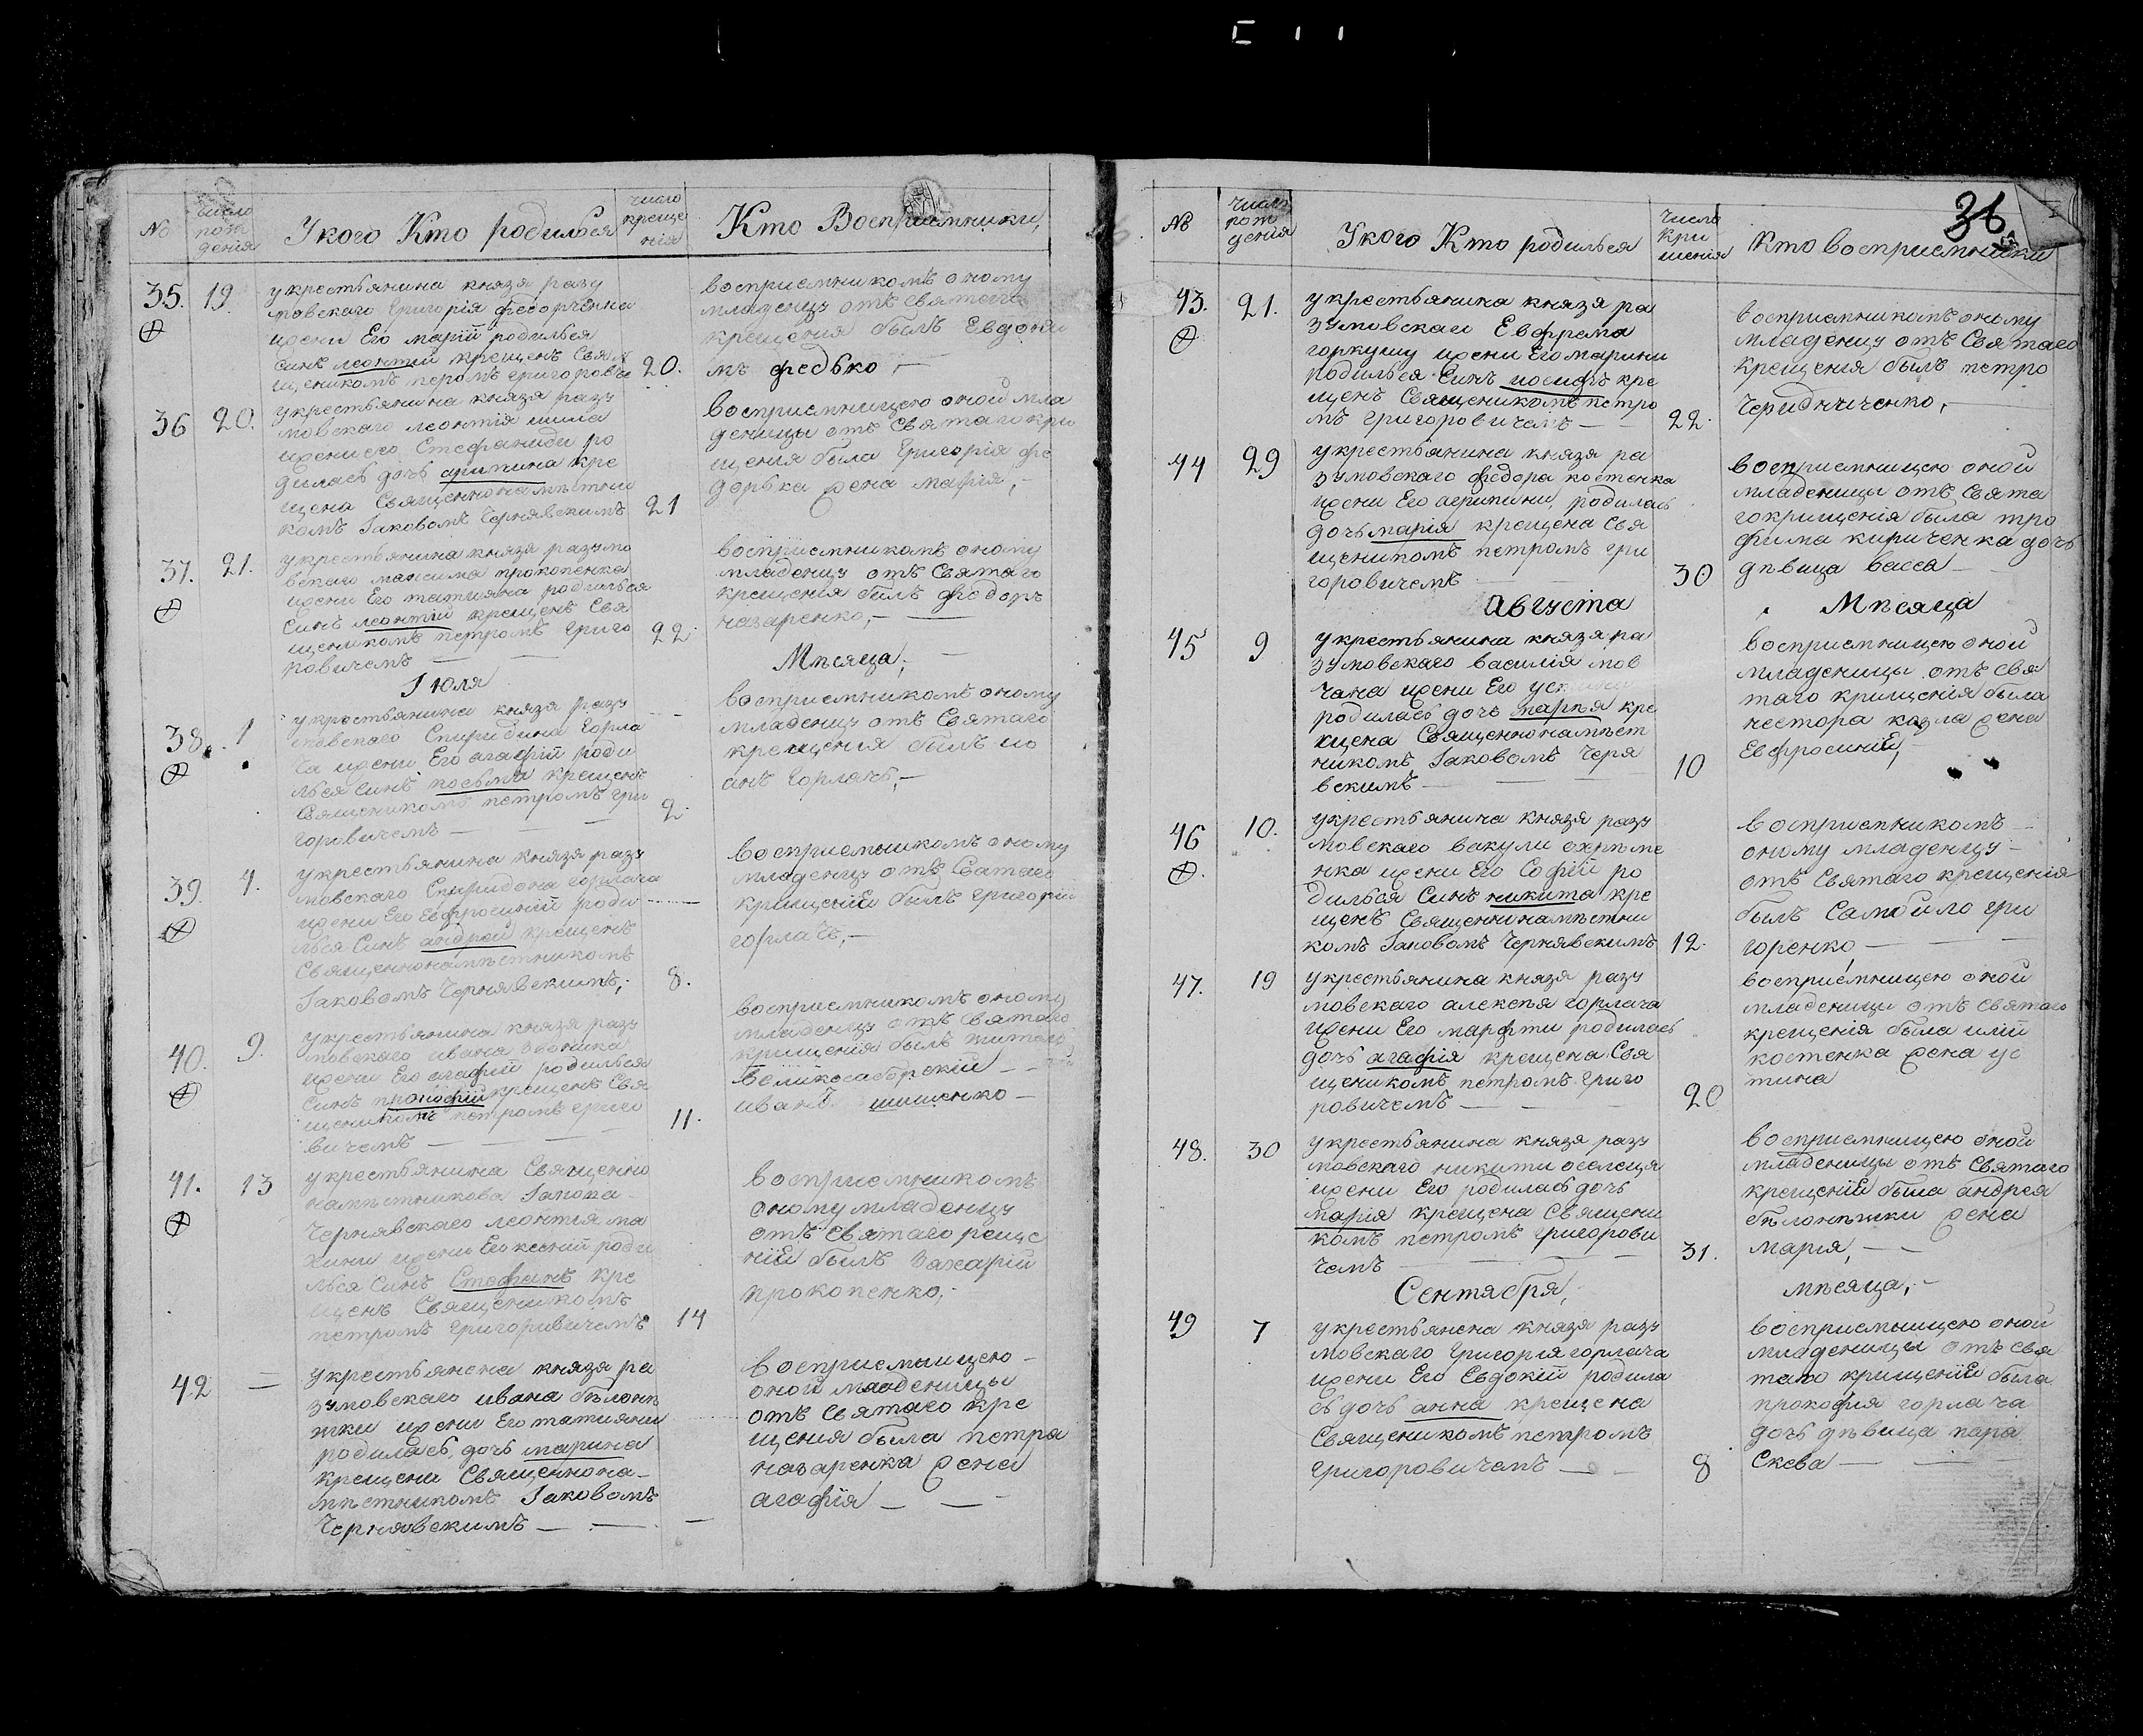 №
число рожденія
У кого Кто родилься
число крещенія
Кто Восприемники,
35. 19.
у крестьянина князя разу
мовскаго Григорія федорченка
жени Его марій родилься
синъ леонтий крещенъ Свя
щеникомъ петромъ григорови
20.
восприемникомъ оному
младенцу отъ святаго
крещения былъ Евдоки
мъ федько,—
36 20.
у крестьянина князя разу
мовскаго леонтія шила
жени его Стефаниди ро
дилась дочь аричина кре
щена Священнонамѣстни
комъ Іаковомъ Чернявскимъ
21
восприемницею оной мла
деници отъ Святаго кри
щения была Григорія фе
дорька жена марія,—
37. 21.
у крестьянина князя разумо
вскаго максима прокопенка
жени Его татияни родилься
Синъ леонтий крещенъ Свя
щеникомъ петромъ григо
ровичемъ —
22.
восприемникомъ оному
младенцу отъ Святаго
крещения былъ феодоръ
назаренко,—
Іюля
Мѣсяца,—
38. 1
у крестьянина князя разу
мовскаго Спиридина Горла
ча жени Его агафій роди
лься синъ косьма крещенъ
Священикомъ петромъ гри
горовичемъ —
2.
восприемникомъ оному
младенцу отъ Святаго
крещения былъ ио
анъ горлачь,—
39. 4.
у крестьянина князя разу
мовскаго Спиридона горлача
жени Его Евфросиній роди
лься Синъ андрей крещенъ
Священнонамѣстникомъ
Іаковомъ Чернявскимъ,
8.
восприемникомъ оному
младенцу отъ Сватаго
крищеній былъ григорий
горлачь,—
40. 9.
у крестьянина князя разу
мовскаго ивана
жени Его агафій родилься
Синъ прокофий крещенъ Свя
щеникомъ петромъ григо
вичемъ —
11.
восприемникомъ оному
младенцу отъ Святаго
крищения былъ житель
великосаборский —
иванъ шишенко —
41. 13
у крестьянина Священно
намѣстникова Іакова
Чернявскаго леонтия ма
жени Его ксений роди
лься Синъ Стефанъ кре
щенъ Священикомъ
петромъ григоривичемъ
14
восприемникомъ
оному младенцу
отъ святаго реще
ній былъ Захарій
прокопенко,—
42 —
у крестьянена князя ра
зумовскаго ивана бѣлонѣ
жки жени Его татияни
родилась, дочь марина
крещена Священнона
мѣстникомъ Іаковомъ
Чернявскимъ —
—
восприемницею —
оной младеници
отъ Святаго кре
щения была петра
назаренка жена
агафія —
36
№
число рождения
У кого Кто родилься
Число кри щения
Кто восприемники
43. 21.
у крестьянина князя ра
зумовскаго Евфрема
горкушу жени Его марини
родилься Синъ иосифъ кре
щенъ Священикомъ петро
мъ григоровичемъ —
22.
восприемникомъ оному
младенцу отъ Святаго
крещения былъ петро
Чередниченко,
44 29
у крестьянина князя ра
зумовскаго федора костенка
жени Его агрипини, родилась
дочь марія крещена Свя
щеникомъ петромъ гри
горовичемъ
30
восприемницею оной
младеници отъ Свята
го крищения была тро
фима кириченка дочь
дѣвица васса —
Августа
Мѣсяца
45 9
у крестьянина князя ра
зумовскаго василія мов
чана жени Его
родилась дочь марѣя кре
щена Священнонамѣст
никомъ Іаковомъ Черня
вскимъ —
10
восприемницею оной
младеници отъ Свя
таго крищения была
нестора козла жена
Евфросиній,
46 10.
у крестьянина князя разу
мовскаго вакули охриме
нка жени Его Софій ро
дилься Синъ никита кре
щенъ Священнонамѣстни
комъ Іаковомъ Чернявскимъ
12.
восприемникомъ —
оному младенцу —
отъ Святаго крещения
былъ Самойло гри
горенко —
47. 19
у крестьянина князя разу
мовскаго алексѣя горлача
жени Его марфти родилась
дочь агафія крещена Свя
щеникомъ петромъ григо
ровичемъ —
20
восприемницею оной
младеници отъ святаго
крещения была илій
костенка жена ус
тина
48. 30
у крестьянина князя разу
мовскаго никити оселеця
жени Его родилась дочь
марія крещена Священи
комъ петромъ григорови
чемъ
31.
восприемницею оной
младеници отъ Святаго
крещений была андрея
бѣлонѣжки жена
марія,—
Сентября,
мѣсяца,—
49 7
у крестьянена князя разу
мовскаго Григорія горлача
жени Его Евдокій родила
сь дочь анна крещена
Священикомъ петромъ
григоровичемъ —
8
восприемницею оной
младеници отъ Свя
таго крищеній была
прокофия горлача
дочь дѣвица пара
скева —